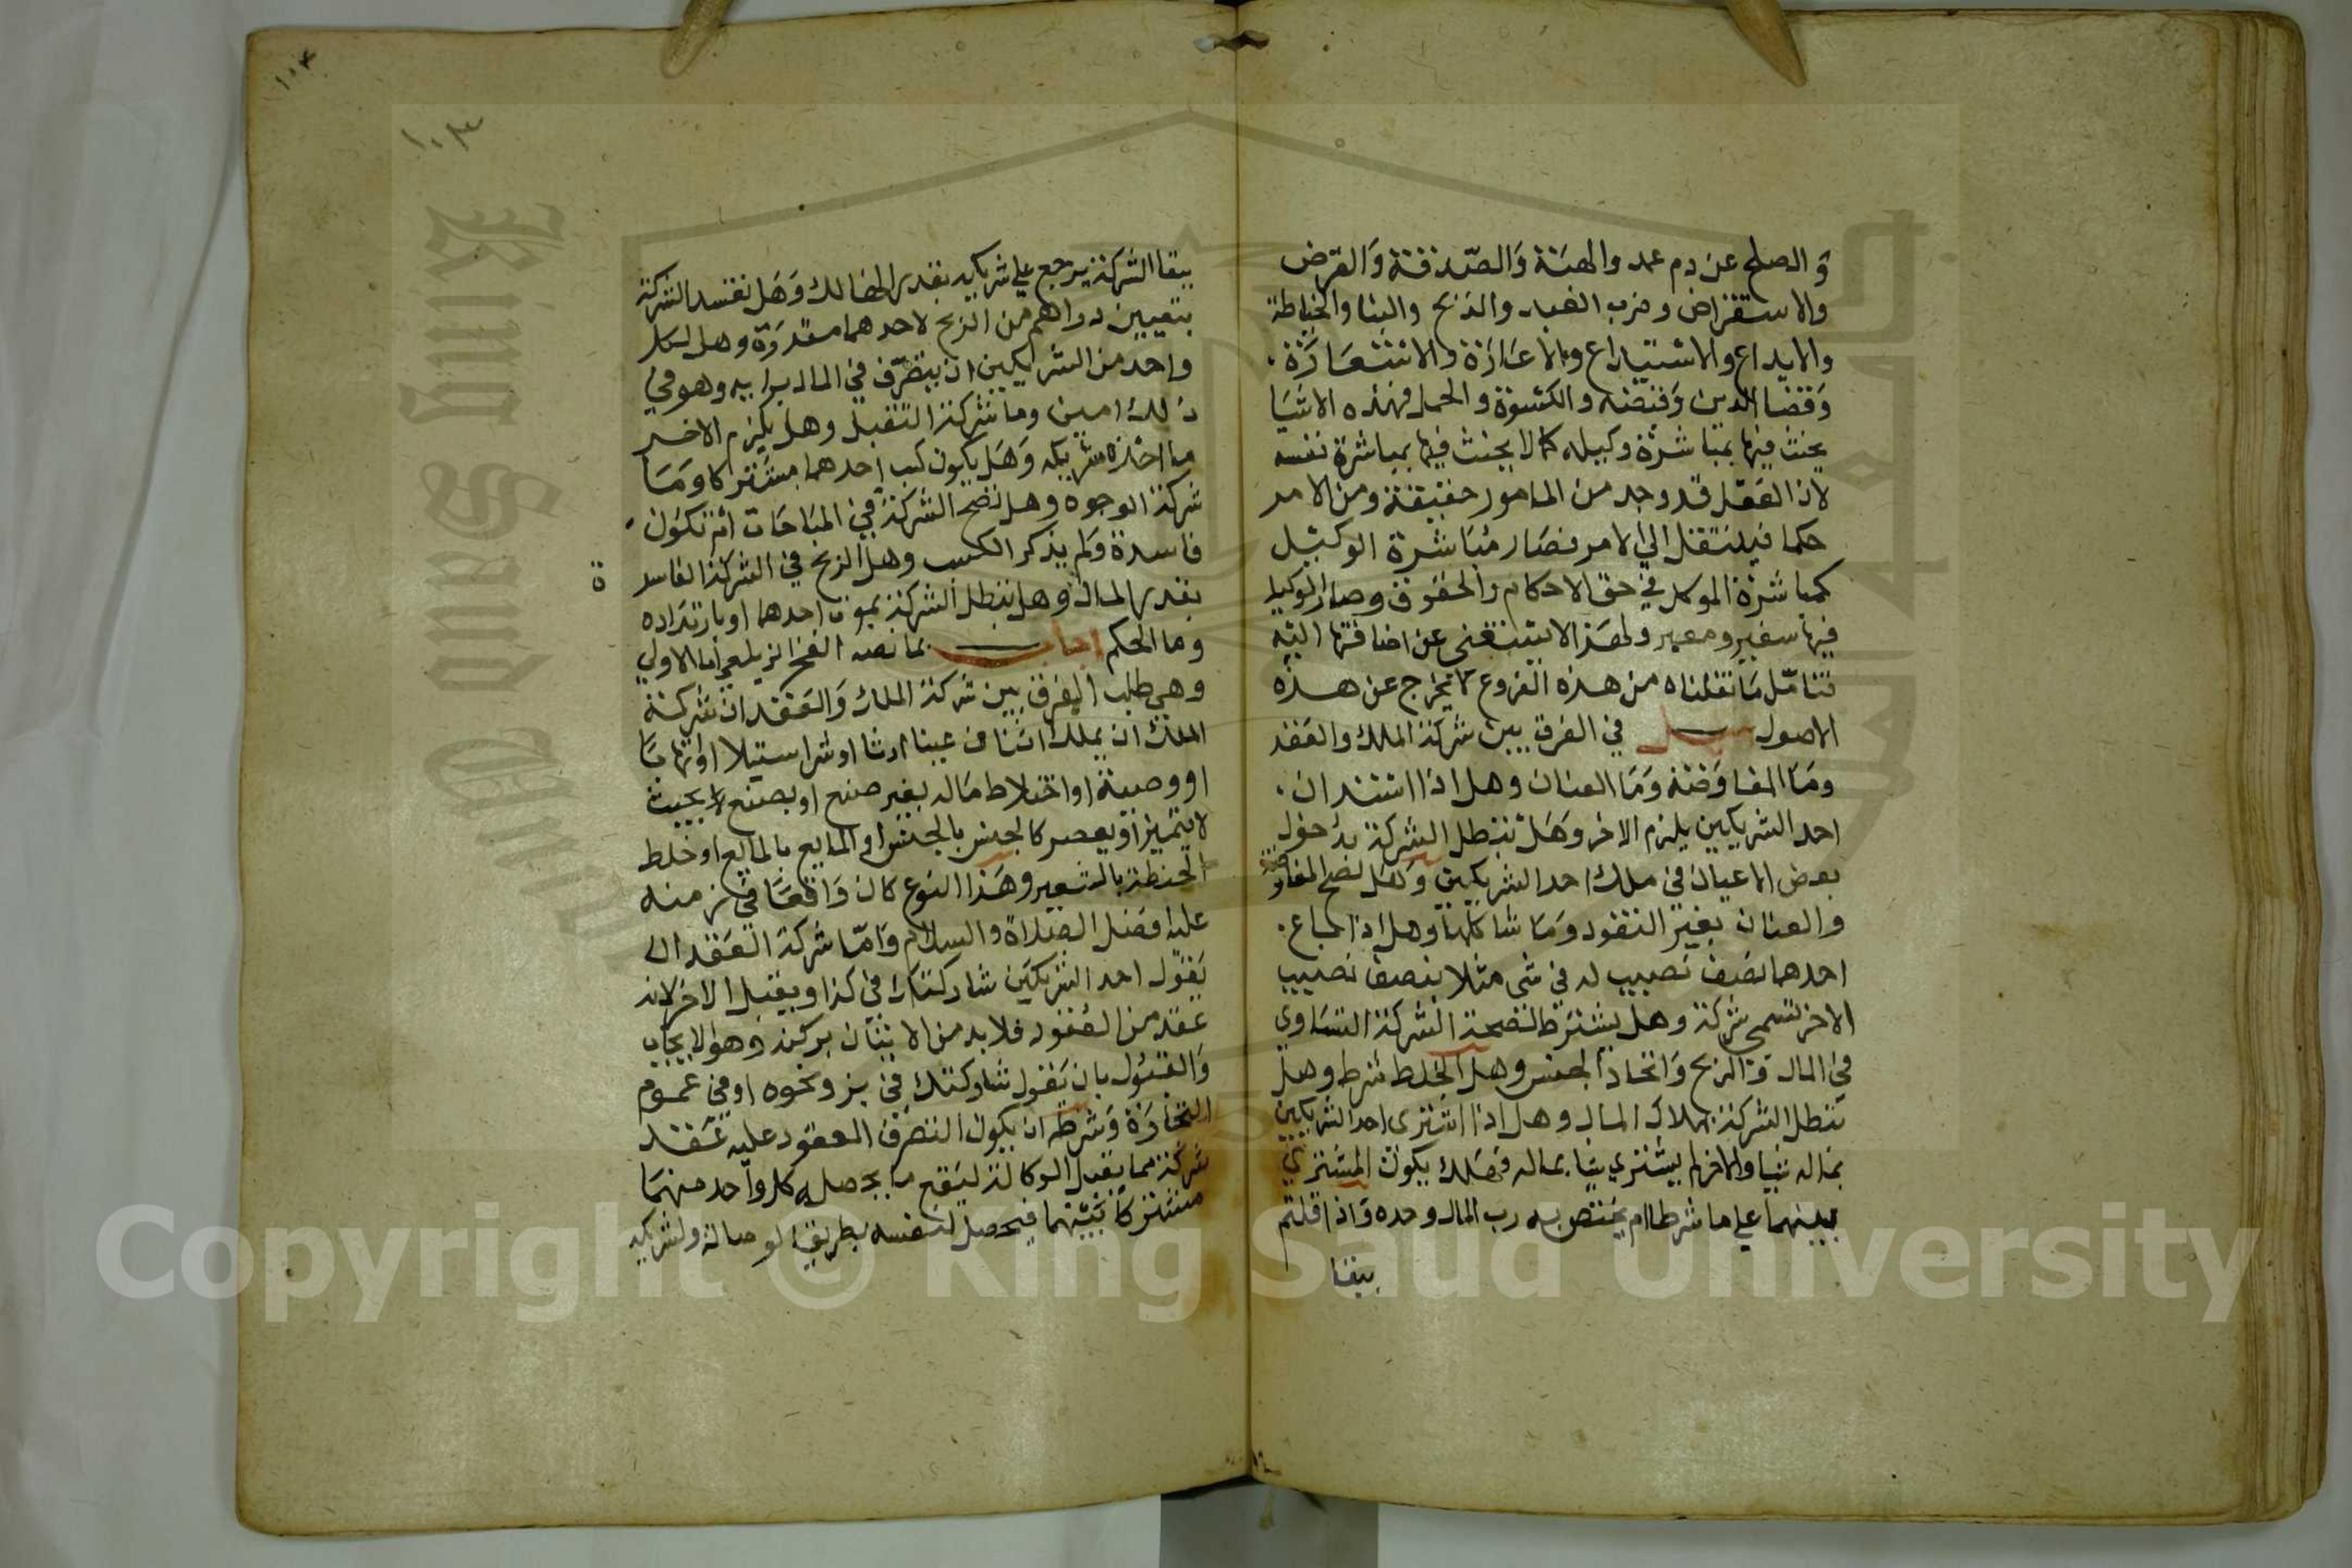 و الصلح عن دم عمد والهبة والصدقة والقرض
والاستقراض وضرب العبد والذبح والبنا والخياطة
والايداع والاستيداع والاعارة والاستعارة
وقضا الدين وقبضه والكسوة والحمل فهذه الاشيا
يحنث فيها بمباشرة وكيله كما لا يحنث فيها بمباشرة نفسه
لان الفعل قد وجد من المامور حقيقة ومن الامر
حكما فينتقل الي الامر فصار مباشرة الوكيل
كمباشرة الموكل في حق الاحكام والحقوق وصار الوكيل
فيها سفير ومعبر ولهذا لا يستغنى عن اضافتها اليه
فتامل ما نقلناه من هذه الفروع لا يخرج عن هذه
الاصول سئل في الفرق بين شركة الملك والعقد
وما المفاوضة وما العنان وهل اذا استدان
احد الشريكين يلزم الاخر وهل تبطل الشركة بدخول
بعض الاعيان في ملك احد الشريكين وهل تصح المفاوضة
والعنان بغير النقود وما شاكلها وهل اذا باع
احدهما نصف نصيب له في شي مثلا بنصف نصيب
الاخر تسمى شركة وهل يشترط لصحة الشركة التساوي
في المال و الربح واتحاد الجنس وهل الخلط شرط وهل
تبطل الشركة بهلاك المال وهل اذا اشترى احد الشريكين
بماله شيا والاخر لم يشتري شيا بماله فهلك يكون المشتري
بينهما علي ما شرطا ام يختص به رب المال وحده واذا قلتم
ببقا
١٠٣
١٠٣
ببقا الشركة يرجع علي شريكه بقدر الهالك وهل تفسد الشركة
بتعيين دراهم من الربح لاحدهما مقدرة وهل لكل
واحد من الشريكين ان يتصرف في المال برايه وهو في
ذلك امين وما شركة التقبل وهل يلزم الاخر
ما اخذه شريكه وهل يكون كسب احدهما مشتركا وما
شركة الوجوه وهل تصح الشركة في المباحات ام تكون
فاسدة ولم يذكر الكسب وهل الربح في الشركة الفاسد
ة
بقدر المال وهل تبطل الشركة بموت احدهما او بارتداده
وما الحكم اجاب بما نصه الفخر الزيلعي اما الاولي
وهي طلب الفرق بين شركة الملك والعقد ان شركة
الملك ان يملك اثنان عينا ارثا او شرا استيلا او اتهابا
او وصية او اختلاط مال بغير صنع او بصنع لا بحيث
لا يتميز او يعصر كالجنس بالجنس او المايع بالمايع او خلط
الحنطة بالشعير وهذا النوع كان واقعا في زمنه
عليه افضل الصلاة والسلام واما شركة العقد ان
يقول احد الشريكين شاركتك في كذا ويقبل الاخر لانه
عقد من العقود فلا بد من الاتيان بركنه وهو الايجاب
والقبول بان يقول شاركتك في بز ونحوه او في عموم
التجارة وشرطه ان يكون التصرف المعقود عليه عقد
شركة مما يقبل الوكالة ليقع ما يحصله كل واحد منهما
مشتركا بينهما فيحصل لنفسه بطريق الوصالة ولشريكه
Copyright © King Saud University
King Saud University